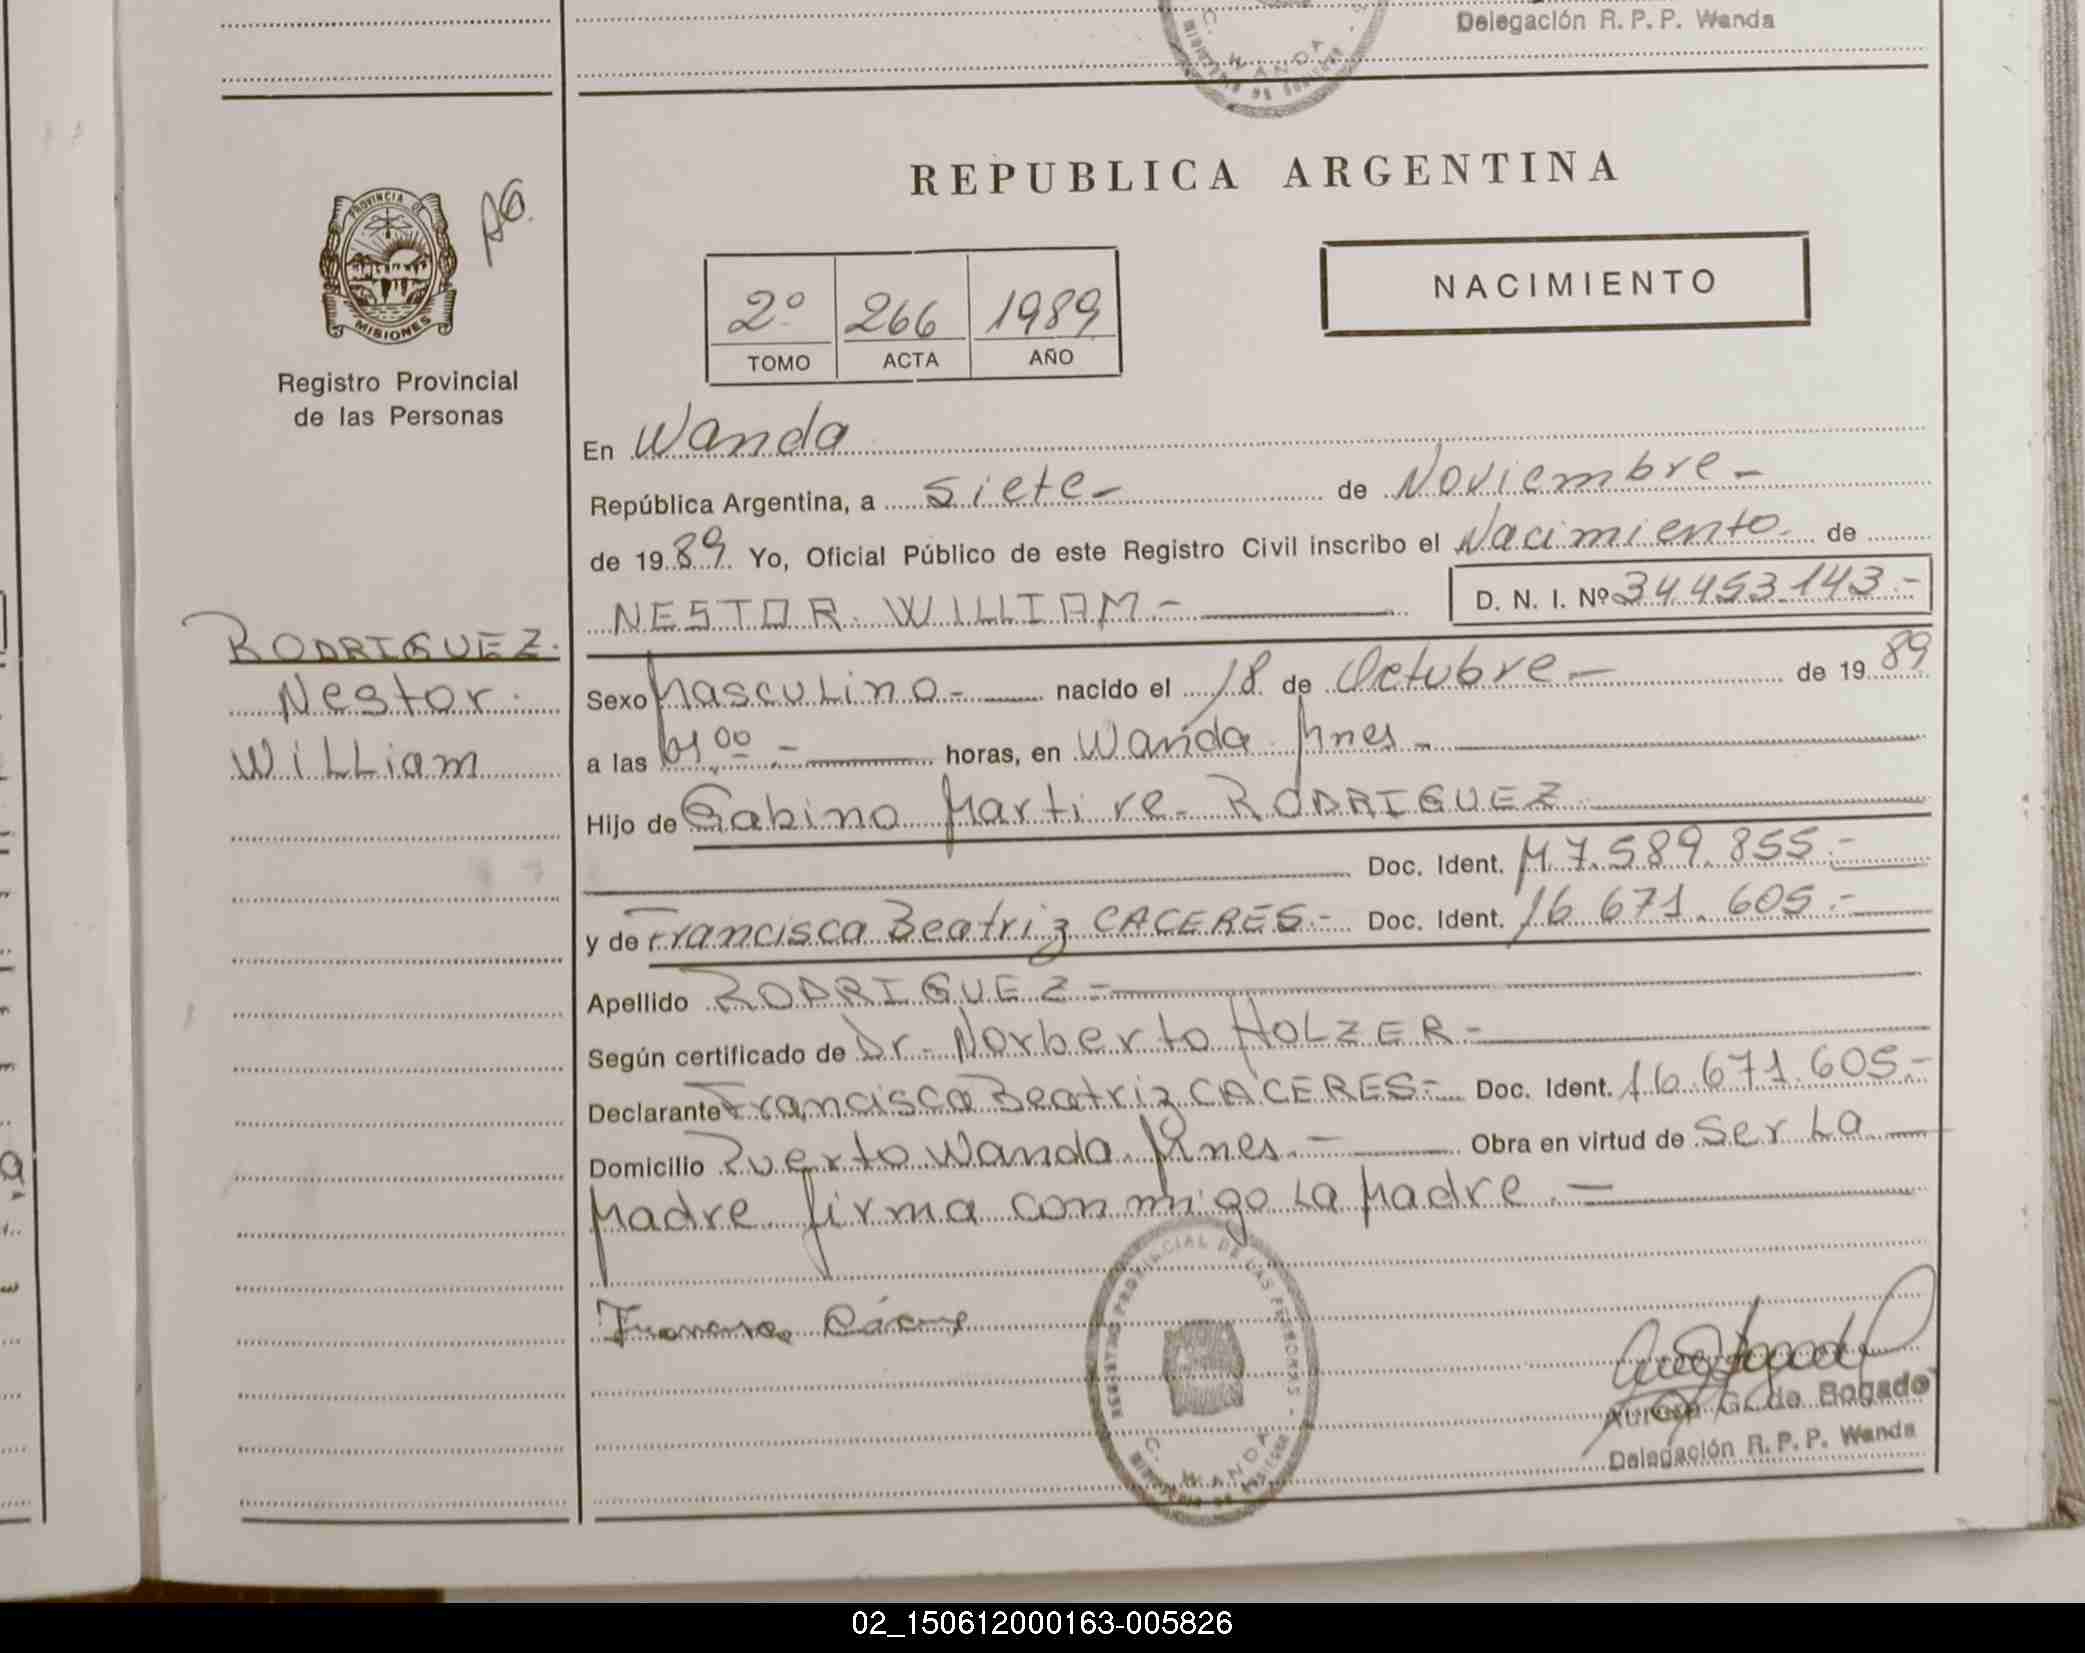 Delegación R. P. P. Wanda
C. WANDA
MINISTERIO DE GOBIERNO
REPUBLICA ARGENTINA
PROVINCIA DE
MISIONES
AG.
Registro Provincial
de las Personas
2º 266 1989
TOMO ACTA AÑO
NACIMIENTO
En Wanda
República Argentina, a siete- de Noviembre-
de 1989. Yo, Oficial Público de este Registro Civil inscribo el Nacimiento de
NESTOR WILLIAM.- D. N. I. Nº 34.453.143.-
RODRIGUEZ.
Nestor
William
Sexo Masculino.- nacido el 18 de Octubre- de 1989
a las 01 00.- horas, en Wanda Mnes-
Hijo de Gabino Martire RODRIGUEZ
Doc. Ident. M 7.589.855.-
y de Francisca Beatriz CACERES.- Doc. Ident. 16.671.605.-
Apellido RODRIGUEZ-
Según certificado de Dr. Norberto HOLZER-
Declarante Francisca Beatriz CACERES.- Doc. Ident. 16.671.605.-
Domicilio Puerto Wanda Mnes.- Obra en virtud de Ser La
Madre firma conmigo La Madre.-
REGISTRO PROVINCIAL DE LAS PERSONAS -
C. WANDA
MINISTERIO DE GOBIERNO
Francisca Cáceres
Aurora G. de Bogado
Delegación R. P. P. Wanda
02_150612000163-005826